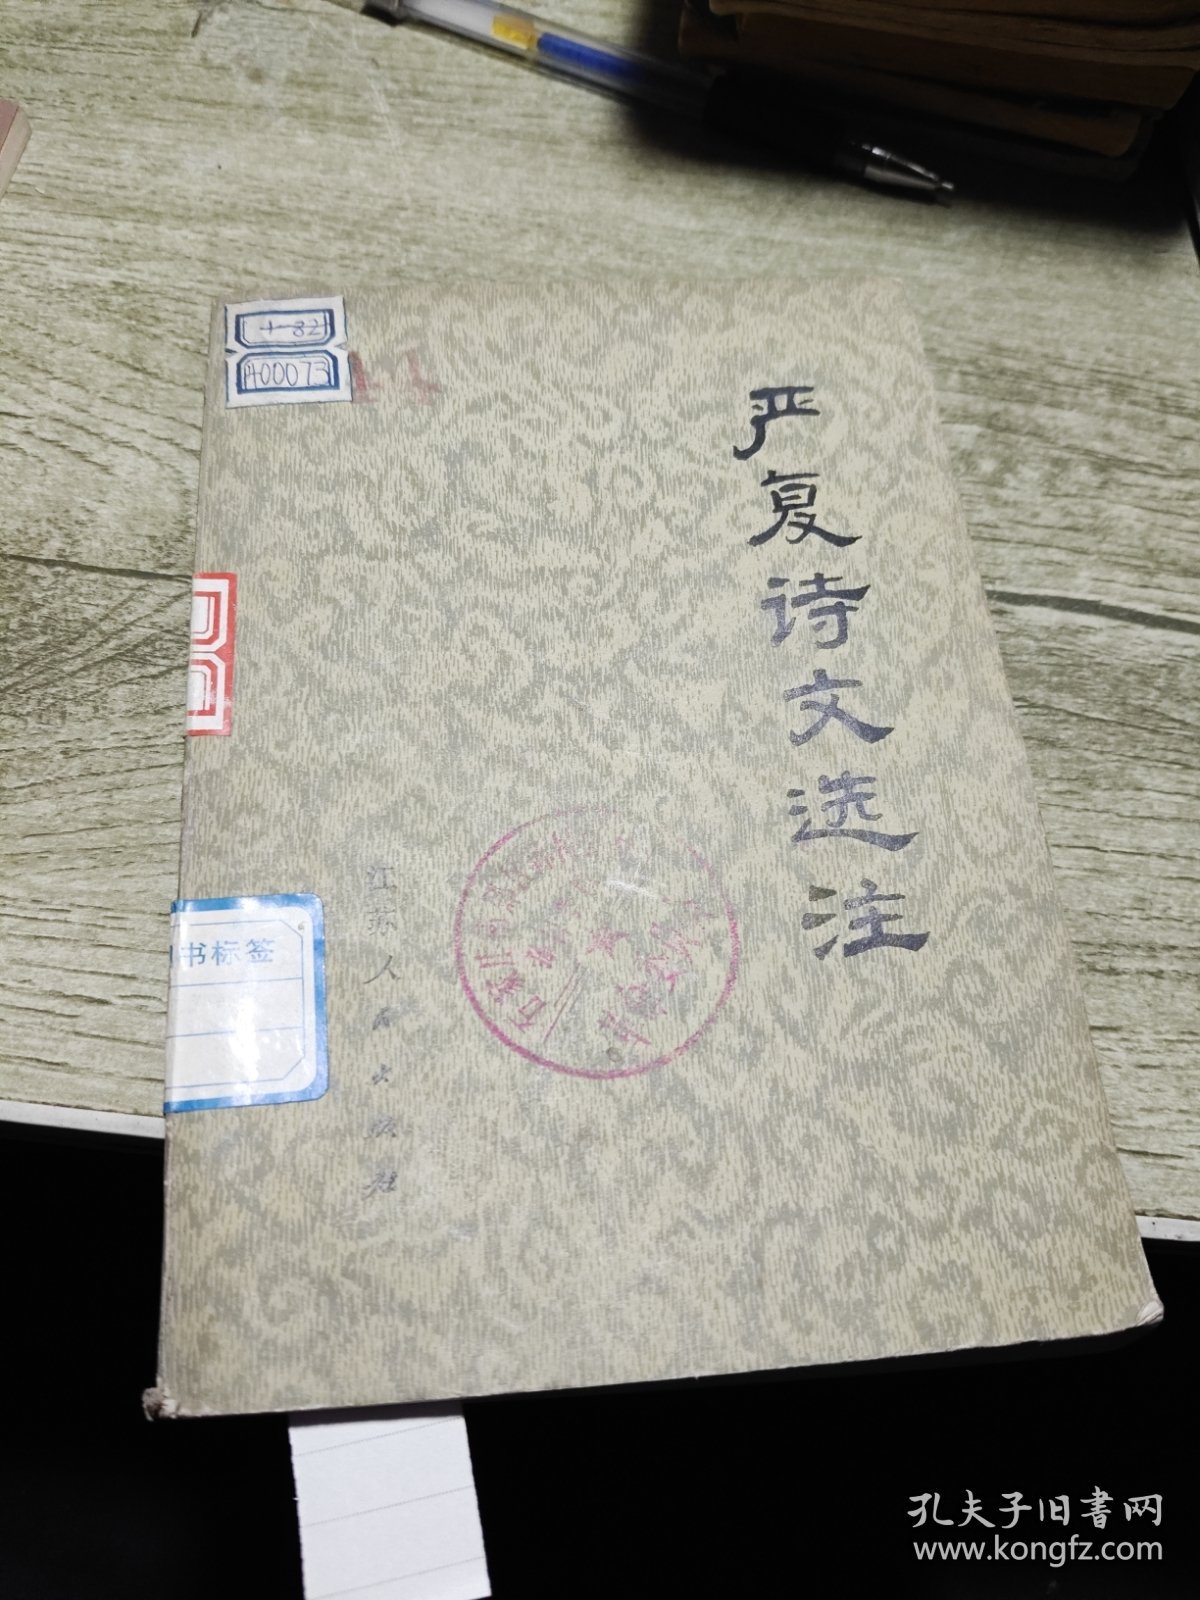 +-82
A00073
严复诗文选注
书标签
江苏人民出版社
孔夫子旧書网
www.kongfz.com